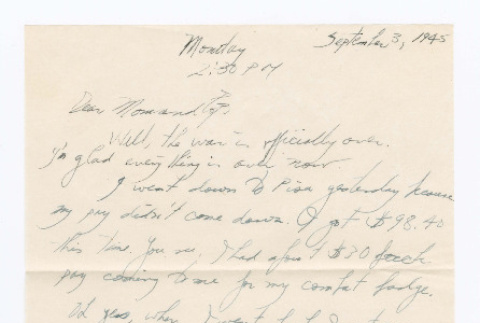 Monday September 3, 1945
2:30 PM
Dear Mom and Pop:
Well, the war is officially over.
I'm glad everything is over now.
I went down to Pisa yesterday because
my pay didn't come down. I got $98.40
this time. You see, I had about $30 back
pay coming to me for my combat badge.
Oh yes, when I went